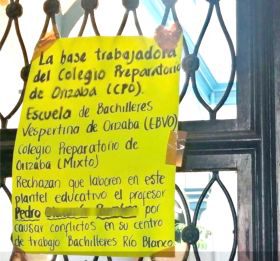 La base trabajadora
del Colegio Preparatorio
de Orizaba (CPO).
Escuela de Bachilleres
Vespertina de Orizaba (EBVO)
Colegio Preparatorio de
Orizaba (Mixto)
Rechazan que laboren en este
plantel educativo el profesor
Pedro por
causar conflictos en su centro
de trabajo Bachilleres Río Blanco.